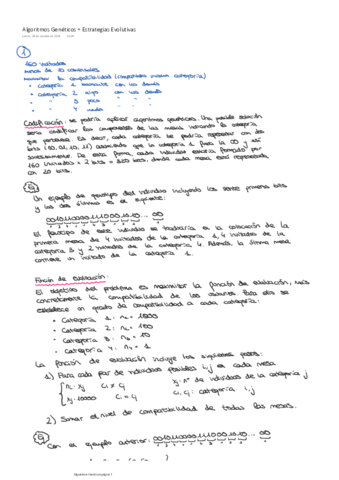 Algoritmos Genéticos + Estrategias Evolutivas
1
160 invitados
mesas de 10 comensales
maximizar la compatibilidad (compartidos misma categoría)
• Categoría 1 bastante con los demás
• Categoría 2 algo con los demás
• " 3 poco " " "
• " 4 nada " " "
Codificación: se podría aplicar algoritmos genéticos. Una posible solución
sería codificar los componentes de las mesas indicando la categoría
que pertenece. Es decir, cada categoría se podría representar con dos
bits (00, 01, 10, 11) asumiendo que la categoría 1 fuera la 00 y así
sucesivamente. De esta forma, cada individuo estaría formado por
160 invitados × 2 bits = 320 bits, donde cada mesa está representada
con 20 bits.
Ej
Un ejemplo de genotipo del individuo incluyendo los veinte primeros bits
y los dos últimos es el siguiente:
El fenotipo de este individuo se traduciría en la colocación de la
primera mesa de 4 invitados de la categoría 1, 4 invitados de la
categoría 3 y 2 invitados de la categoría 4. Además, la última mesa
contiene un invitado de la categoría 1.
Función de evaluación:
El objetivo del problema es maximizar la función de evaluación, más
concretamente la compatibilidad de los usuarios. Para ello se
establece un grado de compatibilidad a cada categoría:
• Categoría 1: n₁ = 1000
• Categoría 2: n₂ = 100
• Categoría 3: n₃ = 10
• Categoría 4: n₄ = 1
La función de evaluación incluye los siguientes pasos:
1) Para cada par de individuos posibles i,j en cada mesa
2) Sumar el nivel de compatibilidad de todas las mesas.
Ej
Con el ejemplo anterior: